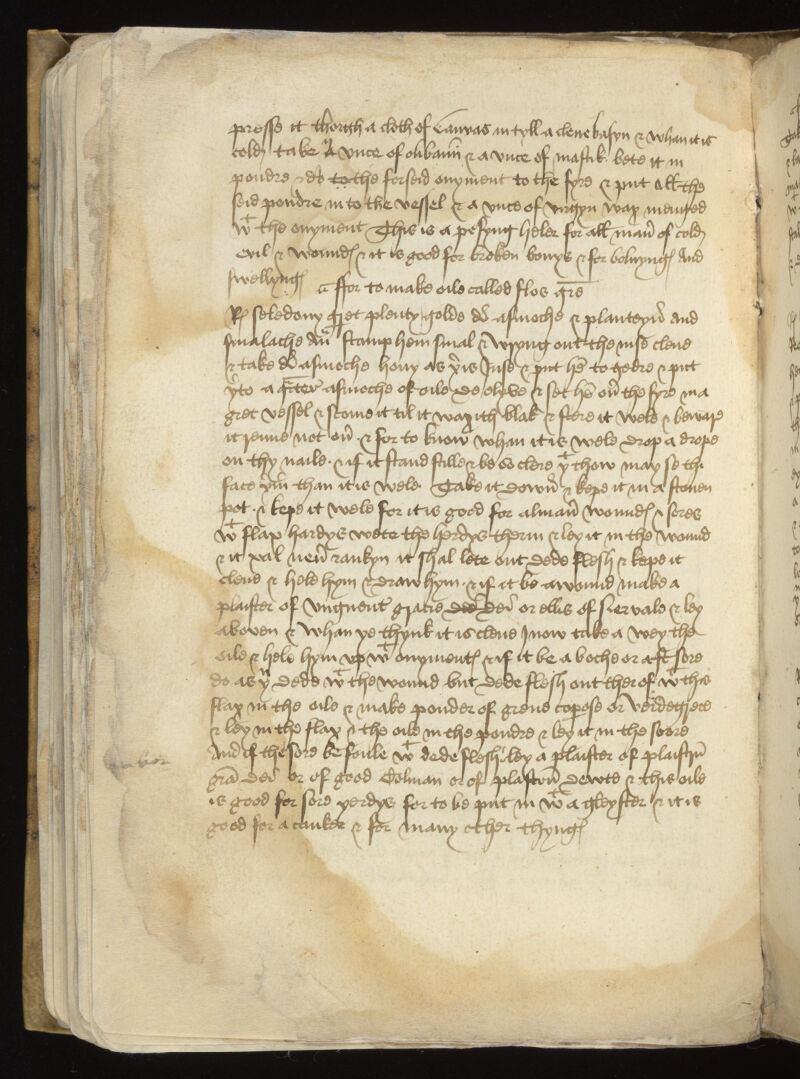 presse it thorgh a cloth of Canvas in tyll a clene basyn & whan it is
cold take A vnce of olibanū & a vnce of mastik bete it in
poudre & do to the forseid onyment to the fyre & put all the
seid poudre in to the vessel & a vnce of virgyn wax menged
wt the onyment This is a pesyng heler for all manr of cold
evil & woundes & it is good for broken bonys & for bolnynges and
swellynges
ffor to make oile called flos gre
Rx seledony gret plenty golde do asmoche & planteyn and
smalache an stamp hem smal & wryng out the iuse clene
& take do asmoche hony as yr is Juse & put hem to gedre & put
yrto a qrter asmoche of oile de olyve & set hem our the fyre in a
gret vessel & scome it til it wax ith blak & stere it wele & beware
it renne not our & for to know whan it is wele drop a drope
on thy naile & if it stand stille & be so clere yt thow may se thi
face yrin than it is wele Take it down & kepe it in a stonen
pot & kepe it wele for it is good for almanr woundes & sores
wt flax hardys wete the herdys therin & ley it in the wound
& it xal neur rankyn it shal lete out dede flesh & kepe it
clene & hele hym & draw hym & if it be a wound make a
plaister of vngnent gracie dei or ellis of siervale & ley
aboven & whan ye thynk it is clene Inow take a wey the
oile & hele hym vp wt onyment & if it be a boche or a sore
do as yu dede wt the wound but dede flesh out ther of wt this
flax in the oile & make pouder of grene copose or verdegrece
& ley in the flax & the oile in the poudre & ley it in the soore
And if the sore be foule wt dede flesh ley a plaister of plaistrū
gra dei or of good Tolman or of plastrū dewte & this oile
is good for sore yerdys for to be put in wt a gleyster & it is
good for a canker & for many other thynges